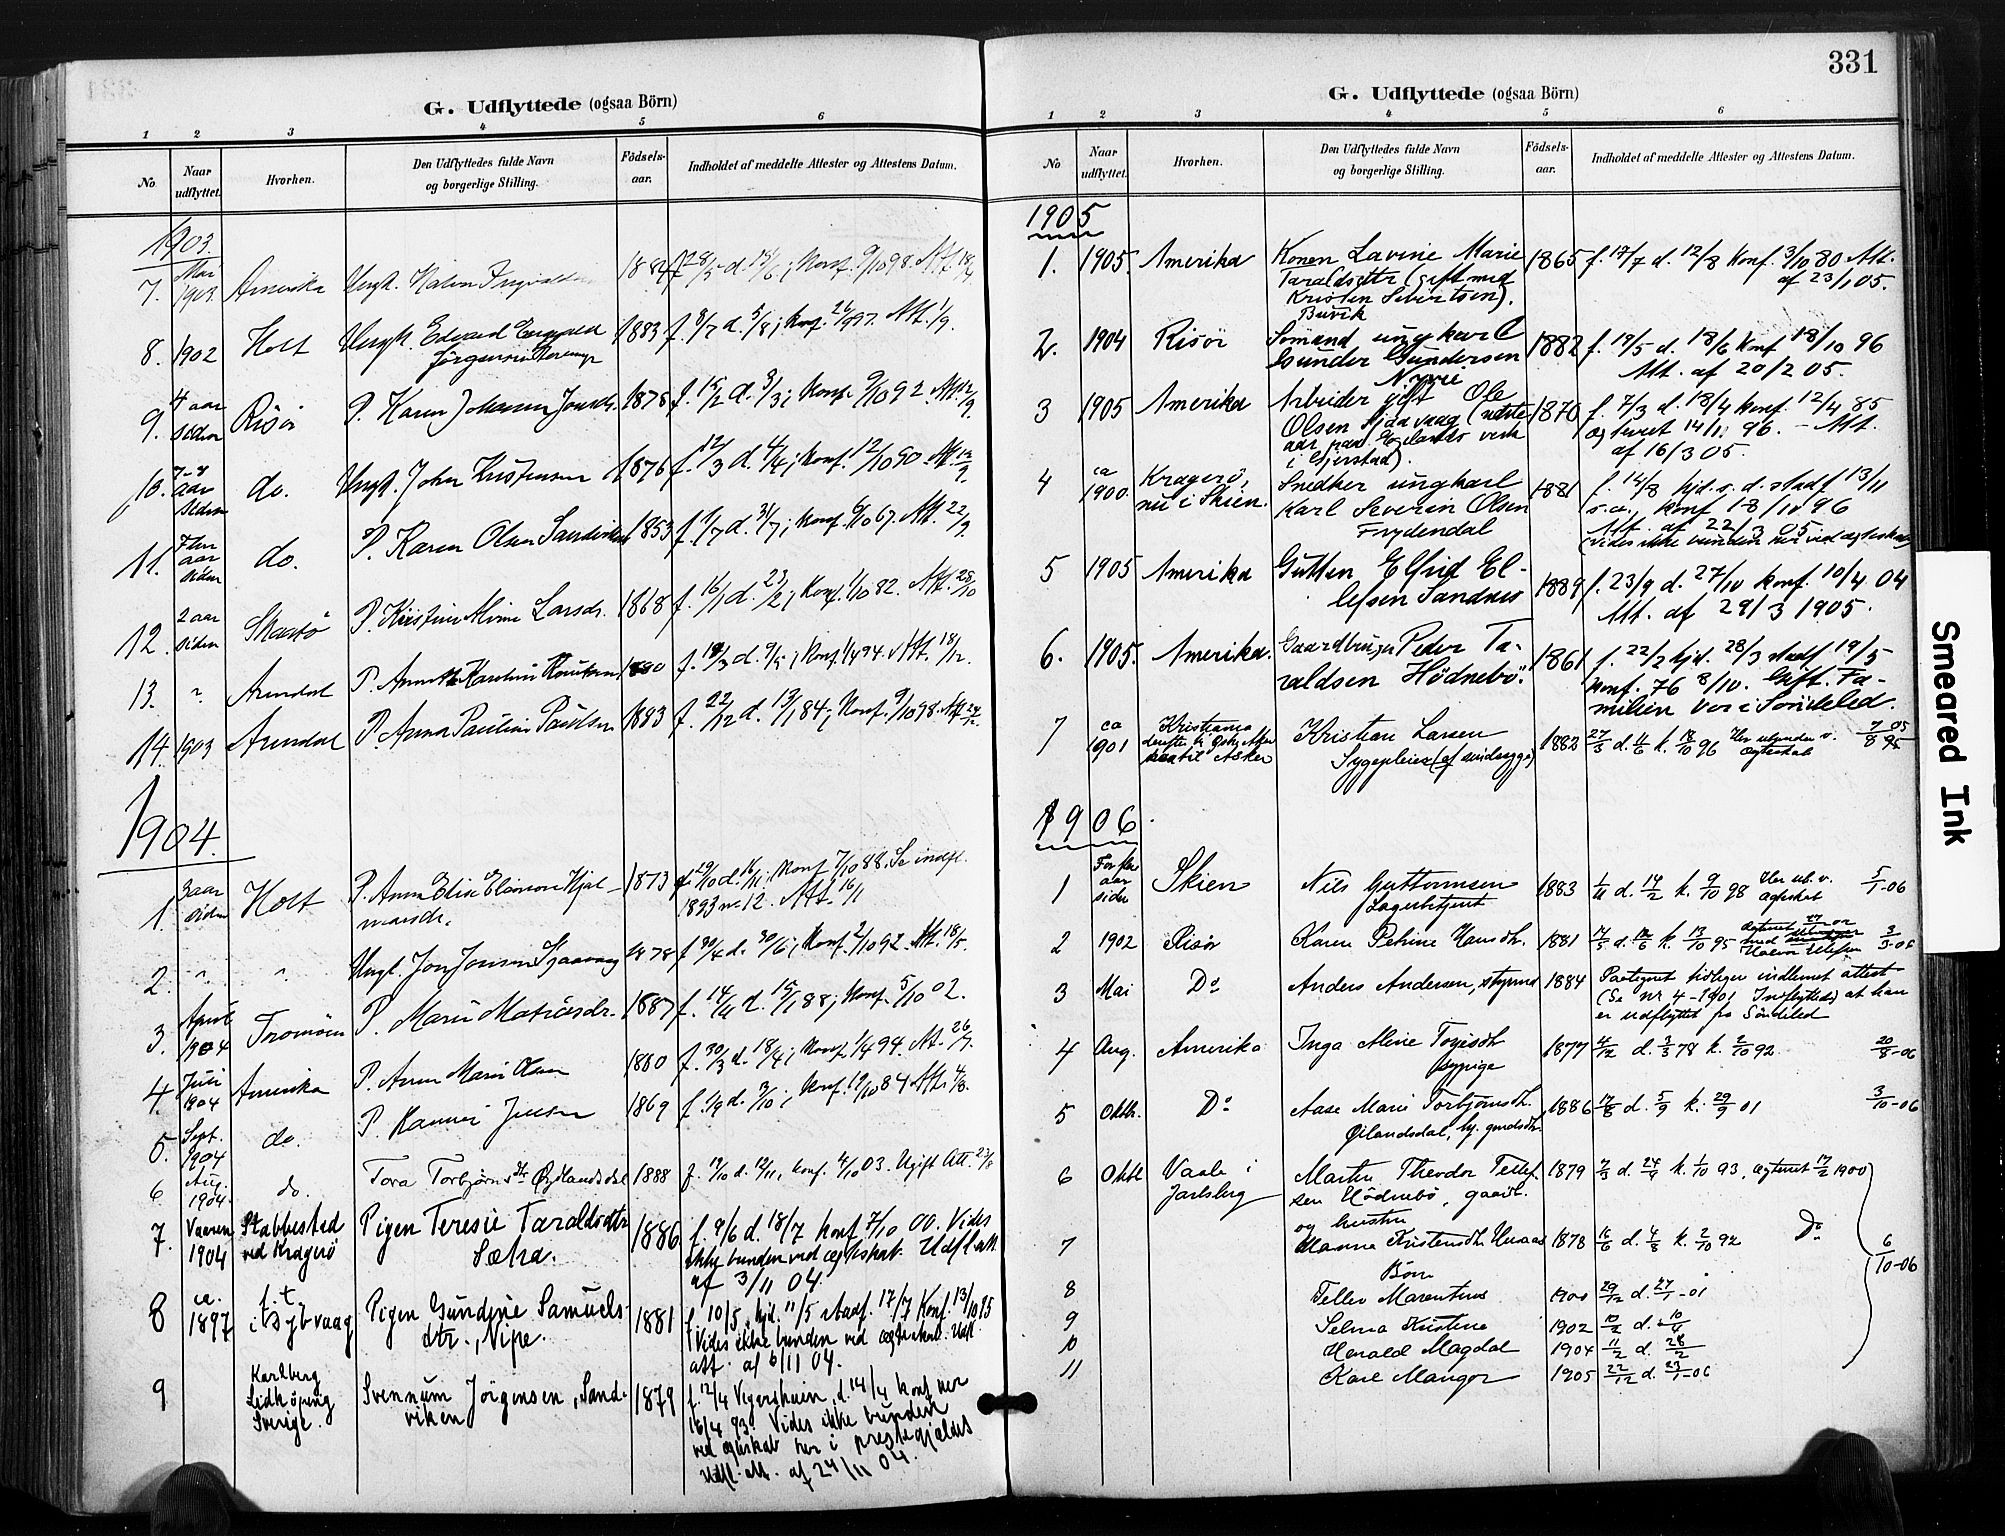 G. Udflyttede (ogsaa Börn)
1 2 3 4 5 6
No
Naar udflyttet.
Hvorhen.
Den Udflyttedes fulde Navn
og borgerlige Stilling.
Födsels-
aar.
Indholdet af meddelte Attester og Attestens Datum.
1903.
7. Mai 1903 Amerika Ungk.
8. 1902 Holt Ungk. Edvard
Jörgensen 1883 f. 8/7 d. 5/8; Konf. Att. 1/9.
9. 4 aar siden Risör P. Karen Johanne 1878 f. 15/2 d. 3/3; Konf. 9/10 92 Att.
10. 7-8 aar siden do. Ungk. John Kristensen 1876 f. 12/3 d. 4/4; Konf. 12/10 90. Att.
11. aar siden do. P. Karen Olsen 1853 f. 1/7 d. 31/7; Konf. 6/10 67. Att. 22/9.
12. 2 aar siden Skaatö P. Kirstine Alvine Larsdr. 1868 f. 16/1 d. 23/2; Konf. 1/10 82. Att. 28/10
13. " Arendal P. Karoline f. d. 9/5; Konf. 1/4 94. Att. 18/12.
14. 1903 Arendal P. Anna Pauline Paulsen 1883 f. 22/12 d. 13/1 84; Konf. 9/10 98. Att.
1904.
1. 3 aar siden Holt P. Anna Elise Hjel-
marsdr. 1873 d. Konf. 7/10 88. Se indfl.
1893 no 12. Att. 16/1
2. " " Ungk. Jon Jonsen 1878 f. 30/4 d. 30/6; Konf. 2/10 92. Att. 18/5.
3. April 1904 Tromöen P. Marie Mathisdr. 1887 f. 14/11 d. 15/1 88; Konf. 5/10 02.
4. Juni 1904 Amerika P. Anna Marie Olsen 1880 f. 30/3 d. 18/4; Konf. 1/4 94. At. 26/7.
5. Sept. 1904 do. P. Hanna Jensen 1869 f. d. 3/10; Konf. 12/10 84 Att. 4/8.
6 Aug. 1904. do. Tora Torbjörnsdtr Øylandsdal 1888 f. 19/10 d. 12/11, Konf. 4/10 03. Ugift Att. 23/8
7. Vaaren 1904 Stabbestad
ved Kragerö Pigen Teresie Taraldsdtr
Sætra. 1886 f. 9/6 d. 18/7 konf 7/10 00. Vides
ikke bunden ved ægteskab. Udfl. att.
af 3/11 04.
8 ca. 1897 f. t.
i Dybvaag Pigen Gundine Samuels-
dtr., Nipe. 1881 f. 10/5, hjd. 11/5 stadf. 17/7 Konf. 13/10 95
Vides ikke bunden ved ægteskab. Udfl.
att. af 6/11 04.
9 Karlberg
Lidköping
Sverige. Svennum Jörgensen, Sand-
viken 1879 f. 12/4 Vegarshein, d. 14/4 konf her
16/4 93. Vides ikke bunden
ved ægteskab her i prestegjeldet
Udfl. att. af 24/11 04.
331
G. Udflyttede (ogsaa Börn)
1 2 3 4 5 6
No
Naar udflyttet.
Hvorhen.
Den Udflyttedes fulde Navn
og borgerlige Stilling.
Födsels-
aar.
Indholdet af meddelte Attester og Attestens Datum.
1905
1. 1905. Amerika Konen Lavine Marie
Taraldsdtr (gift med
Kristen Sivertsen).
Buvik 1865 f. 17/7 d. 12/8 Konf. 3/10 80 Att.
af 23/1 05.
2. 1904 Risör Sömand ungkarl
Gunder Gundersen
1882 f. 19/5 d. 18/6 Konf 18/10 96
Att. af 20/2 05.
3 1905 Amerika Arbeider gift Ole
Olsen Sjaavaag (sidste
aar paa Egelands verk
i Gjerstad). 1870 f. 7/3 d. 18/4 Konf. 12/4 85
Egteviet 14/11 96. - Att.
af 16/3 05.
4 ca 1900. Kragerö,
nu i Skien. Snedker ungkarl
Karl Severin Olsen
Frydendal 1881 f. 14/8 hjd. s. d. stadf 13/11
s. a., konf 18/10 96
Att. af 22/3 05
(Vides ikke bunden her ved ægteskab)
5 1905 Amerika Gutten Elfrid El-
lefsen Sandnes 1889 f. 23/9 d. 27/10 konf. 10/4 04
Att. af 29/3 1905.
6. 1905. Amerika. Gaardbruger Peder Ta-
raldsen Hödnebö. 1861 f. 22/2 hjd. 28/3 stadf. 19/5
konf. 76 8/10. Gift. Fa-
milien bor i Söndeled.
7 ca 1901 Kristiania
til Asker Kristian Larsen
Sygepleier 1882 27/3 d. 11/6 k. 18/10 96 Her ubunden v.
Ægteskab
1906.
1 For fire aar siden Skien Nils Guttormsen
Lagerbetjent 1883 d. 14/2 k. 9/10 98 Her ub. v.
Ægteskab 5/1-06
2 1902 Risör Karen Petrine Hansdtr. 1881 17/5 d. 12/6 k. 13/10 95 Ægteviet
med
Halvor Ellefsen 3/3-06
3 Mai Do Anders Andersen, styrmd 1884 Paategnet tidligere indlemet attest
(Se nr 4-1901 Indflyttede) at han
er udflyttet fra Söndeled
4 Aug. Amerika Inga Aline
sypige 1877 4/12 d. 3/3 78 k. 2/10 92. 20/8-06
5 Oktb. Do Aase Marie Torbjörnsdtr.
Øilandsdal, 1886 17/8 d. 5/9 k. 29/9 01 3/10-06
6 Oktb Vaale i
Jarlsberg Martin Theodor Tellef-
sen Hödnebö, gaardbr.
og hustru 1879 7/3 d. 24/9 k. 1/10 93, ægteviet 17/2 1900
7 Hanna Kristensdtr. 1878 16/6 d. 4/8 k. 2/10 92 Do
6/10-06
Börn
8 Tellef Marentius 1900 29/12 d. 27/1-01
9 Selma Kristine 1902 10/2 d. 10/4
10 Harald Magdal 1904 11/2 d. 28/2
11 Kare Mangor 1905 22/12 d. 23/1-06
Smeared Ink